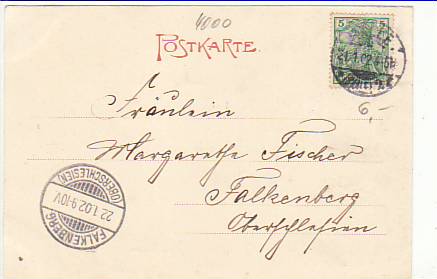 4000
POSTKARTE.
5 5
21.1.02
6,-
Fräulein
Margarethe Fischer
Falkenberg
Oberschlesien
FALKENBERG
22.1.02.9-10V
(OBERSCHLESIEN)